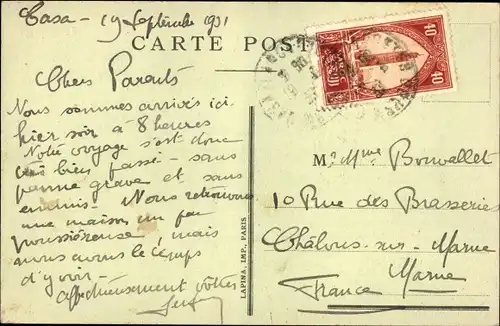 Casa - 19 Septembre 1931
CARTE POST
Chers Parents
Nous sommes arrivés ici
hier soir à 8 heures
Notre voyage s'est donc
très bien passé - sans
panne grave et sans
ennuis. Nous retrouvons
une maison un peu
poussiéreuse, mais
nous avons le temps
d'y voir -
affectueusement vôtres
LAPINA, IMP., PARIS
40
40
M. Mme Bonvallet
10 Rue des Brasseries
Châlons-sur-Marne
Marne
France